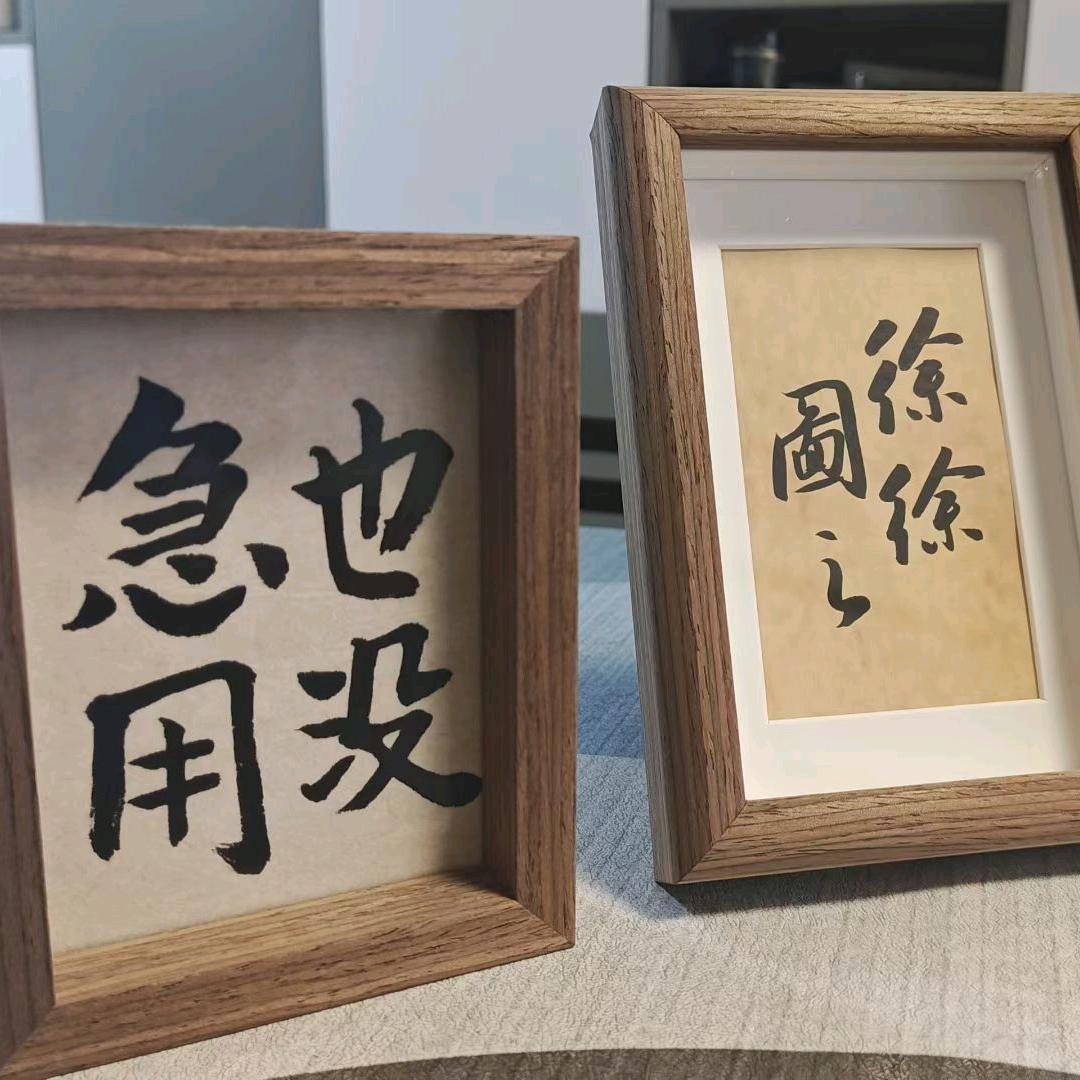 也没
急用
徐徐
圖之